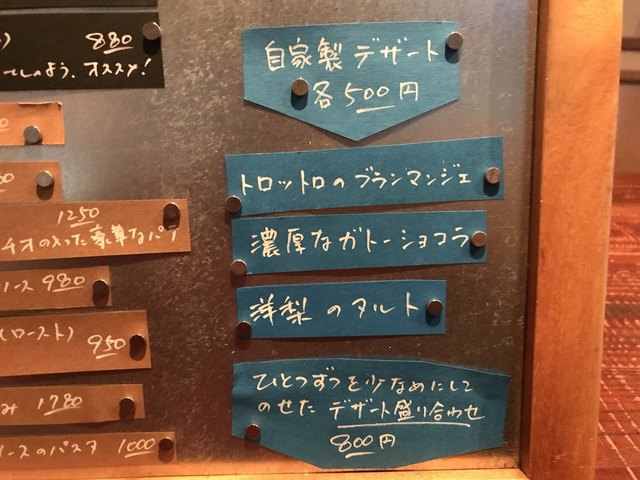 880
オススメ!
1250
チオの入った豪華なパ
ース 980
(ロースト)
950
み 1780
ースのパスタ 1000
自家製デザート
各500円
トロットロのブランマンジェ
濃厚なガトーショコラ
洋梨のタルト
ひとつずつを少なめにして
のせた デザート盛り合わせ
800円